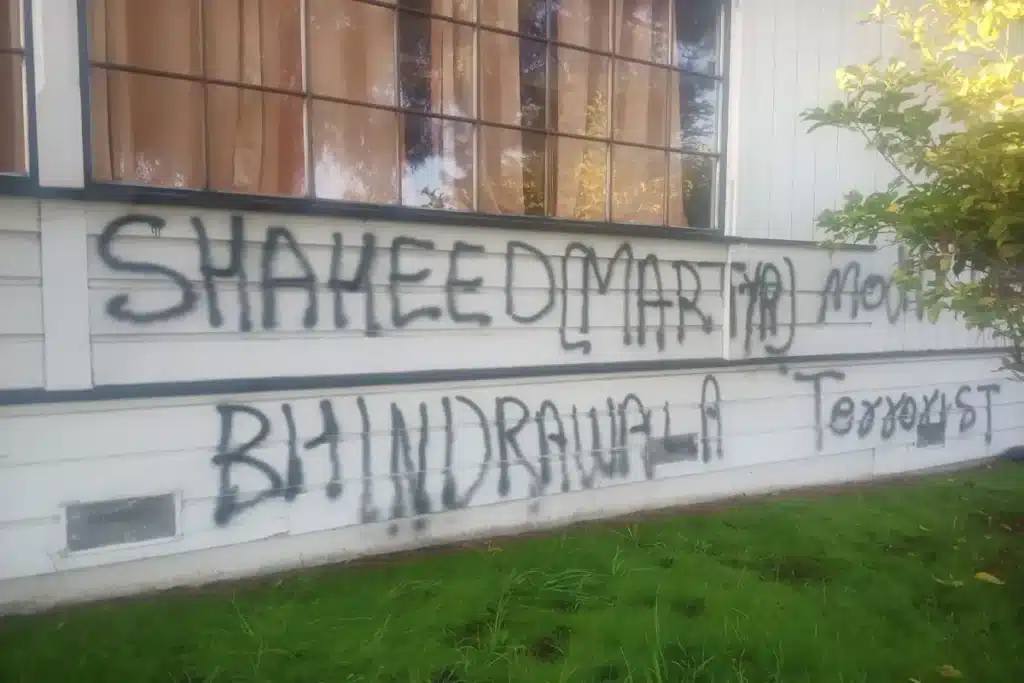 SHAHEED [MARTYR]
BHINDRAWALA TerrorIST